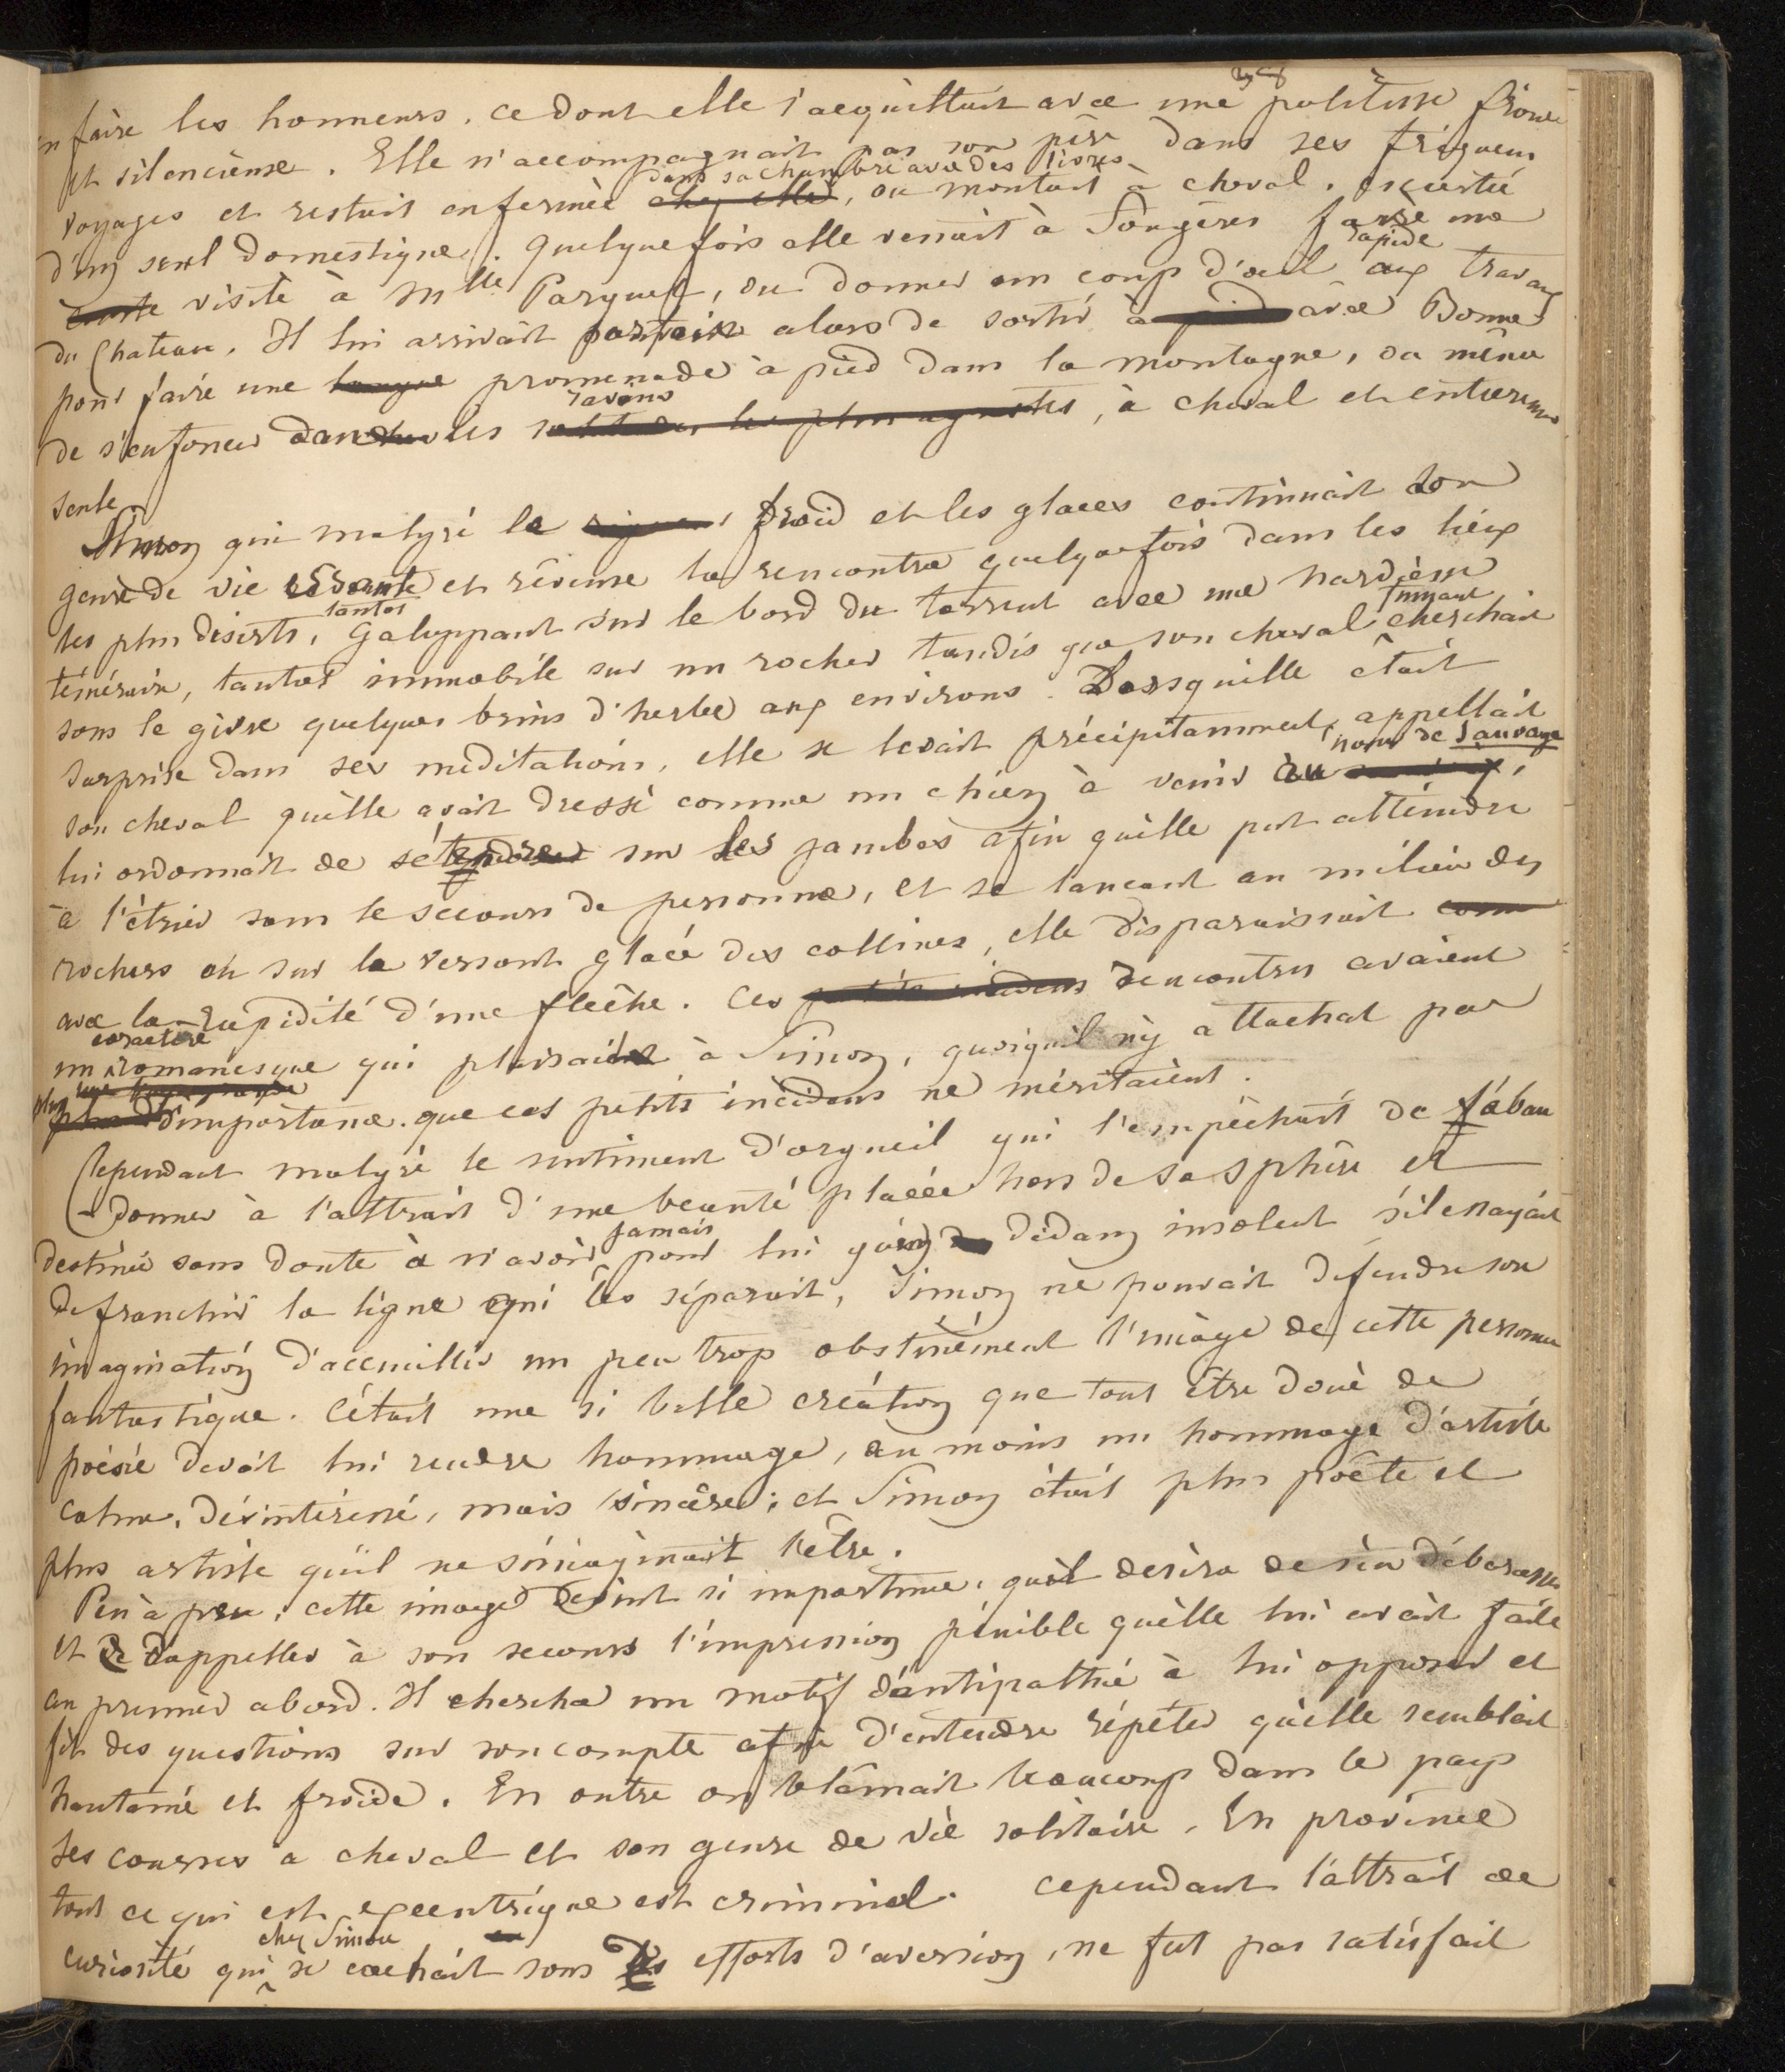 en faire les honneurs, ce dont elle s'acquittait avec une politesse froide
et silencieuse. Elle n'accompagnait pas son père dans ses fréquens
dans sa chambre avec des livres
voyages et restait enfermée chez elle, ou montait à cheval, escortée
d'un seul domestique. Quelquefois elle venait à Fougères faire une
rapide
courte visite à Mlle Parquet, ou donner un coup d'œil aux travaux
du Chateau. Il lui arrivait parfois alors de sortir à pied avec Bonne
pour faire une longue promenade à pied dans la montagne, ou même
ravins
de s'enfoncer dans les solitudes les plus agrestes, à cheval et entierement
seule.
Simon qui malgré le froid et les glaces continuait son
genre de vie errante et rêveuse la rencontra quelquefois dans les lieux
tantot
les plus déserts, galoppant sur le bord du torrent avec une hardiesse
fumant
téméraire, tantot immobile sur un rocher tandis que son cheval cherchait
sous le givre quelques brins d'herbe aux environs. Lorsqu'elle était
surprise dans ses méditations, elle se levait précipitamment, appellait
nom de Sauvage
son cheval qu'elle avait dressé comme un chien à venir au
lui ordonnait de s'étendre sur ses jambes afin qu'elle put atteindre
à l'étrier sans le secours de personne, et se lançant au milieu des
rochers ou sur le versant glacé des collines, elle disparaissait comme
avec la rapidité d'une flèche. Ces rencontres avaient
caractère
un romanesque qui plaisait à Simon, quoiqu'il n'y attachat pas
plus
plus d'importance que ces petits incidens ne méritaient.
Cependant malgré le sentiment d'orgueil qui l'empêchait de s'aban
-donner à l'attrait d'une beauté placée hors de sa sphère et
jamais
destinée sans doute à n'avoir pour lui qu'un dédain insolent s'il essayait
de franchir la ligne qui les séparait, Simon ne pouvait défendre son
imagination d'accueillir un peu trop obstinément l'image de cette personne
fantastique. C'était une si belle création que tout être doué de
poésie devait lui rendre hommage, au moins un hommage d'artiste
calme, désintéressé, mais sincère; et Simon était plus poëte et
plus artiste qu'il ne s'imaginait l'être.
Peu à peu, cette image devint si importune, qu'il desira de s'en débarasser
et d'appeller à son secours l'impression pénible qu'elle lui avait faite
au premier abord. Il chercha un motif d'antipathie à lui opposer et
fit des questions sur son compte afin d'entendre répéter qu'elle semblait
hautaine et froide. En outre on blâmait beaucoup dans le pays
ses courses à cheval et son genre de vie solitaire. En province
tout ce qui est excentrique est criminel. Cependant l'attrait de
chez Simon
curiosité qui se cachait sous ses efforts d'aversion, ne fut pas satisfait